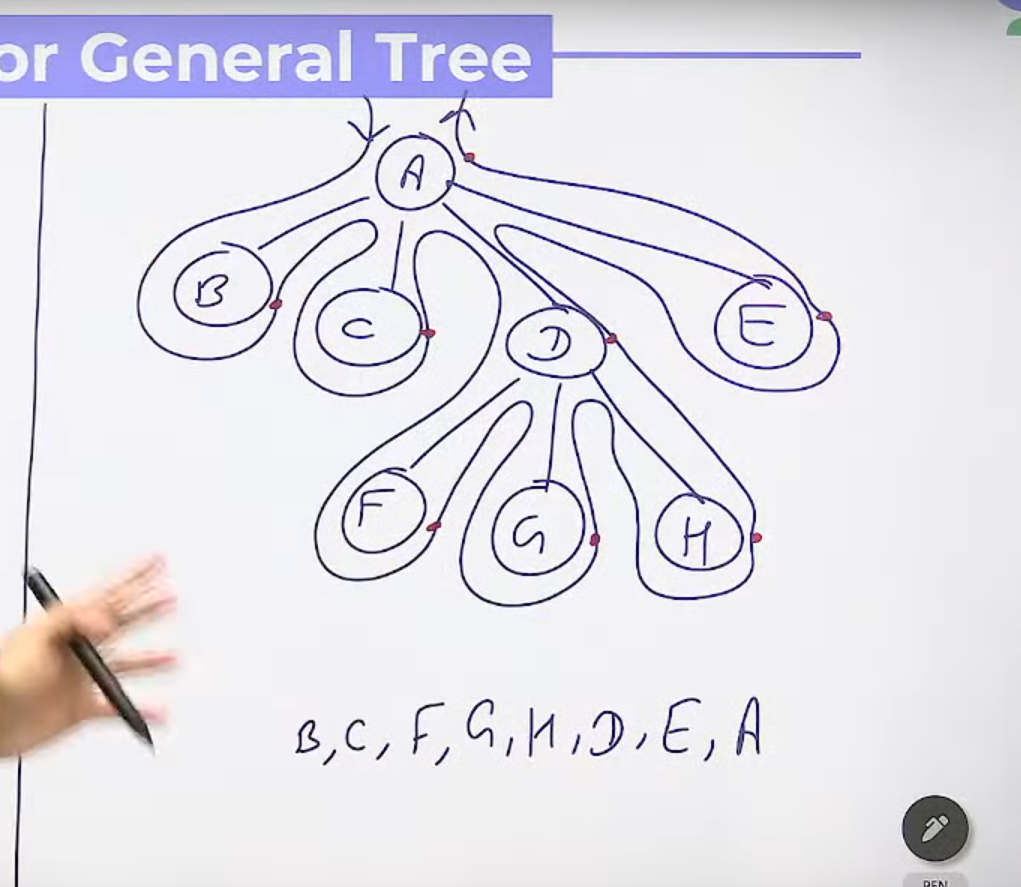 or General Tree
A
B
C
D
E
F
G
H
B, C, F, G, H, D, E, A
PEN